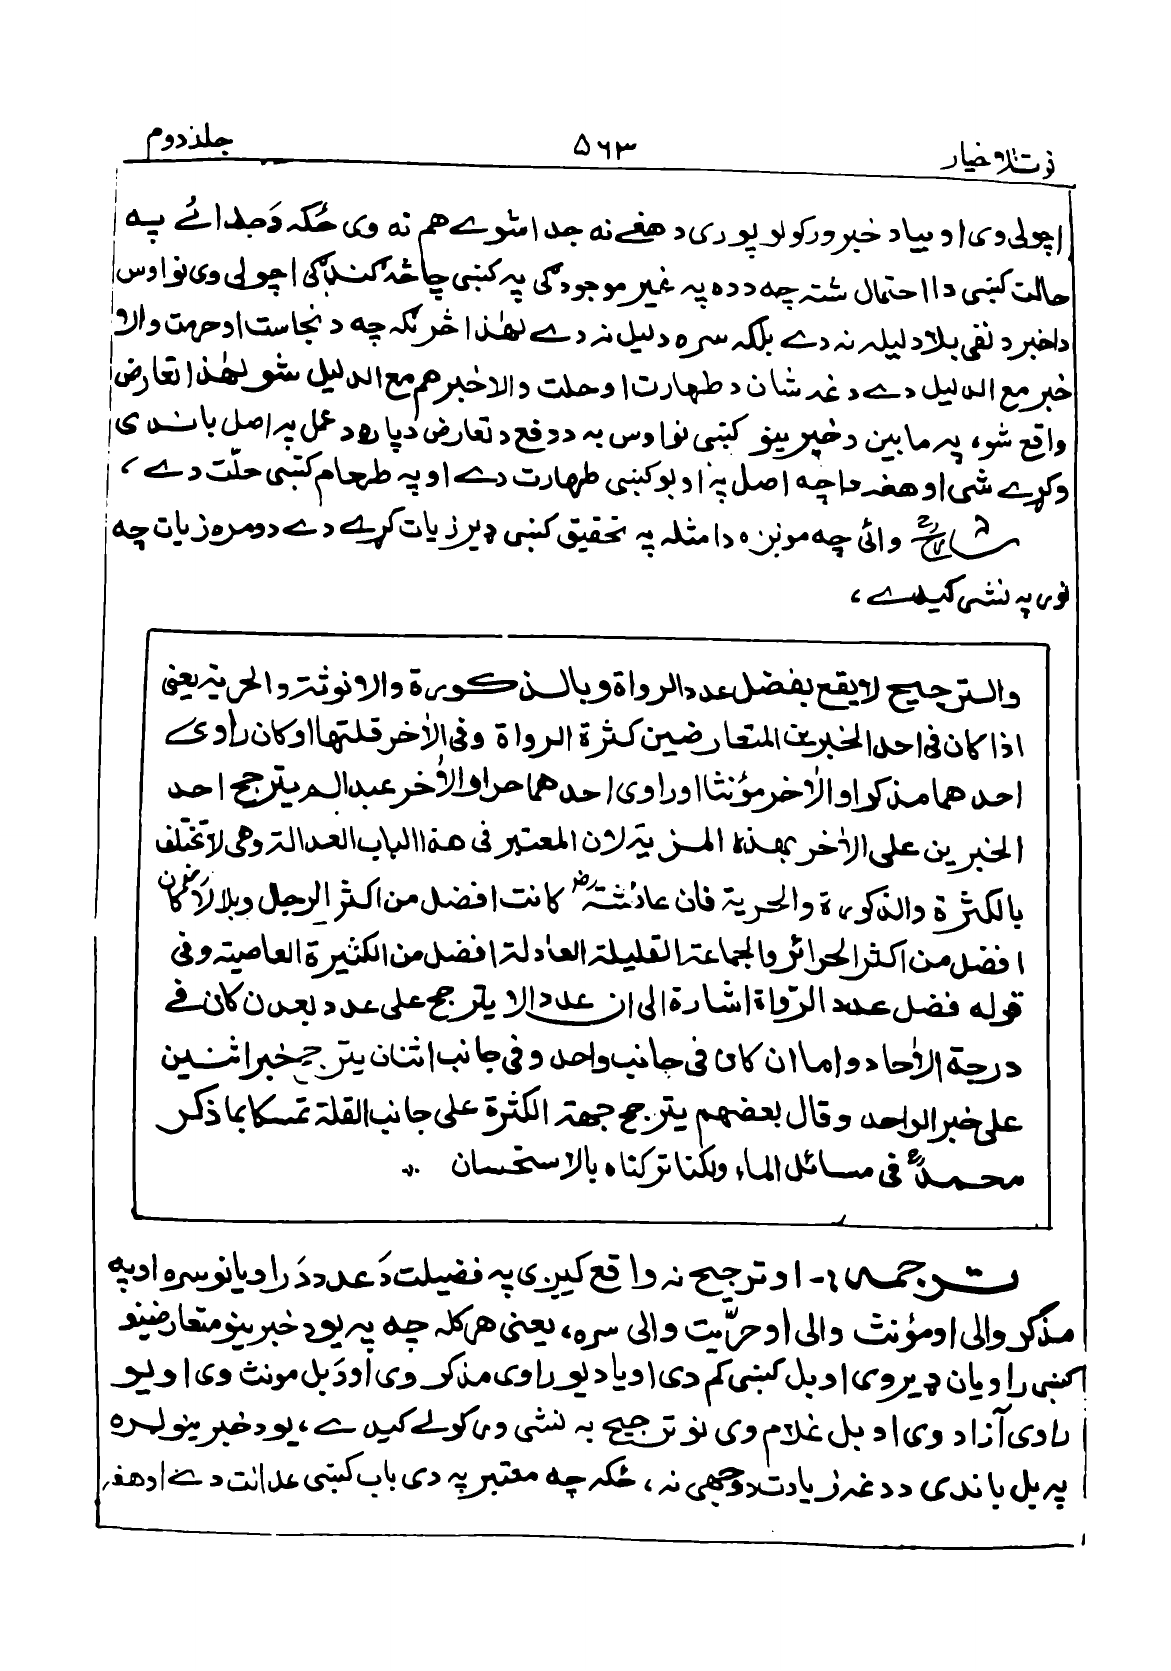 جلد دوم
۵۶۳
اچولی وی او بیا د خبر ورکولو پوری د هغے نه جدا شوے هم نه وی ځکه د جدائے په
حالت کښی دا احتمال شته چه د ده په غیر موجودګی په کښی چا څه ګندګی اچولی وی نو اوس
دا خبر د نفی بلا دلیله نه دے بلکه سره د دلیل نه دے لهٰذا څرنګه چه د نجاست او حرمت والا
خبر مع الدلیل دے دغه شان د طهارت او حلت والا خبر هم مع الدلیل شو لهٰذا تعارض
واقع شو، په مابین د خبرینو کښی نو اوس به د دفع د تعارض دپاره د عمل په اصل باندی
وکړے شی او هغه دا چه اصل په اوبو کښی طهارت دے او په طعام کښی حلّت دے،
شارحؒ وائی چه مونږه دا مثله په تحقیق کښی ډیر زیات کړے دے دومره زیات چه
نوی په نشی کیدے،
والترجیح لایقع بفضل عدد الرواة وبالذکورة والانوثة والحریة یعنی
اذا کان فی احد الخبرین المتعارضین کثرة الرواة وفی الاٰخر قلتها او کان راوی
احدهما مذکرا والاٰخر مؤنثا او راوی احدهما حرا والاٰخر عبدا لم یترجح احد
الخبرین علی الاٰخر بهذه المزیة لان المعتبر فی هذا الباب العدالة وهی لا تختلف
بالکثرة والذکورة والحریة فان عائشةؓ کانت افضل من اکثر الرجل وبلالاؓ کان
افضل من اکثر الحرائر والجماعة القلیلة العادلة افضل من الکثیرة العاصیة وفی
قوله فضل عدد الرّواة اشارة الی ان عددا لا یترجح علی عدد بعد ن کان فے
درجة الاٰحاد واما ان کان فی جانب واحد وفی جانب اثنان یترجح خبر اثنین
علی خبر الواحد وقال بعضهم یترجح جهة الکثرة علی جانب القلة تمسکا بما ذکر
محمدؒ فی مسائل الماء ولکنا ترکناه بالاستحسان
ترجمه :- او ترجیح نه واقع کیږی په فضیلت دَ عدد دَ راویانو سره او په
مذکر والی او مؤنث والی او حرّیت والی سره، یعنی هر کله چه په یو د خبرینو متعارضینو
کښی راویان ډیر وی او بل کښی کم دی او یا د یو راوی مذکر وی او دَ بل مونث وی او یو
راوی آزاد وی او بل غلام وی نو ترجیح به نشی ورکولے کیدے، یو د خبرینو لره
په بل باندی د دغه زیادت د وجهی نه، ځکه چه معتبر په دی باب کښی عدالت دے او هغه